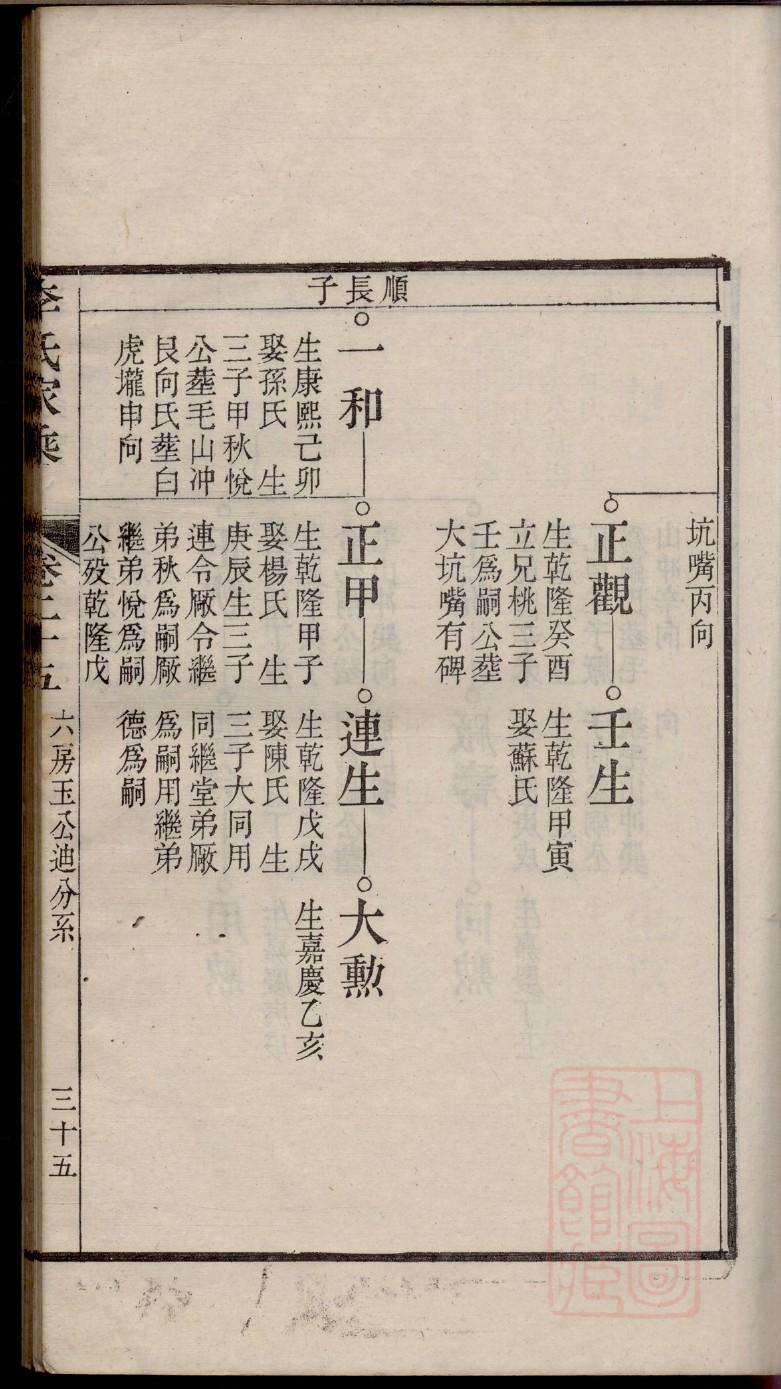 順長子
坑嘴丙向
正觀
生乾隆癸酉
立兄桃三子
壬爲嗣公塟
大坑嘴有碑
壬生
生乾隆甲寅
娶蘇氏
一和
生康熙己卯
娶孫氏　生
三子甲秋悅
公塟毛山冲
艮向氏塟白
虎壠申向
正甲
生乾隆甲子
娶楊氏　生
庚辰生三子
連令厰令繼
弟秋爲嗣厰
繼弟悅爲嗣
公歿乾隆戊
連生
生乾隆戊戌
娶陳氏　生
三子大同用
同繼堂弟厰
爲嗣用繼弟
德爲嗣
大勲
生嘉慶乙亥
李氏家乘
卷二十五
六房玉公迪分系
三十五
上海圖書館藏